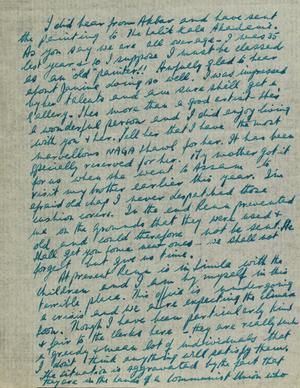 I did hear from Akbar and have sent
the painting to the Lalit Kala Akademi.
As you say we are all over age. I was 35
last year & so I suppose I must be classed
as an "old" painter! Awfully glad to hear
about Janine doing so well. I was impressed
by her talents and am sure she'll get a
Gallery. She's more than a good artist; she's
a wonderful person and I did enjoy living
with you & her. Tell her that I have the most
marvellous NAGA shawl for her. It has been
specially reserved for her. My mother got it
for us when she went to Assam to
visit my brother earlier this year. I'm
afraid old chap I never despatched those
cushion covers. In the end Renu prevented
me on the grounds that they were used &
old and could therefore not be sent. We
shall get you some new ones — we shall not
forget but give us time.
At present Renu is in Simla with the
children and I am by myself in this
terrible place. This office is undergoing
a crisis and we are expecting the climax
soon. Though I have been particularly kind
& fair to the clerks here — they are really such
a greedy & mean lot of individuals that
I don't think anything will satisfy them.
The situation is aggravated by the fact that
they are in the hands of a communist Union who